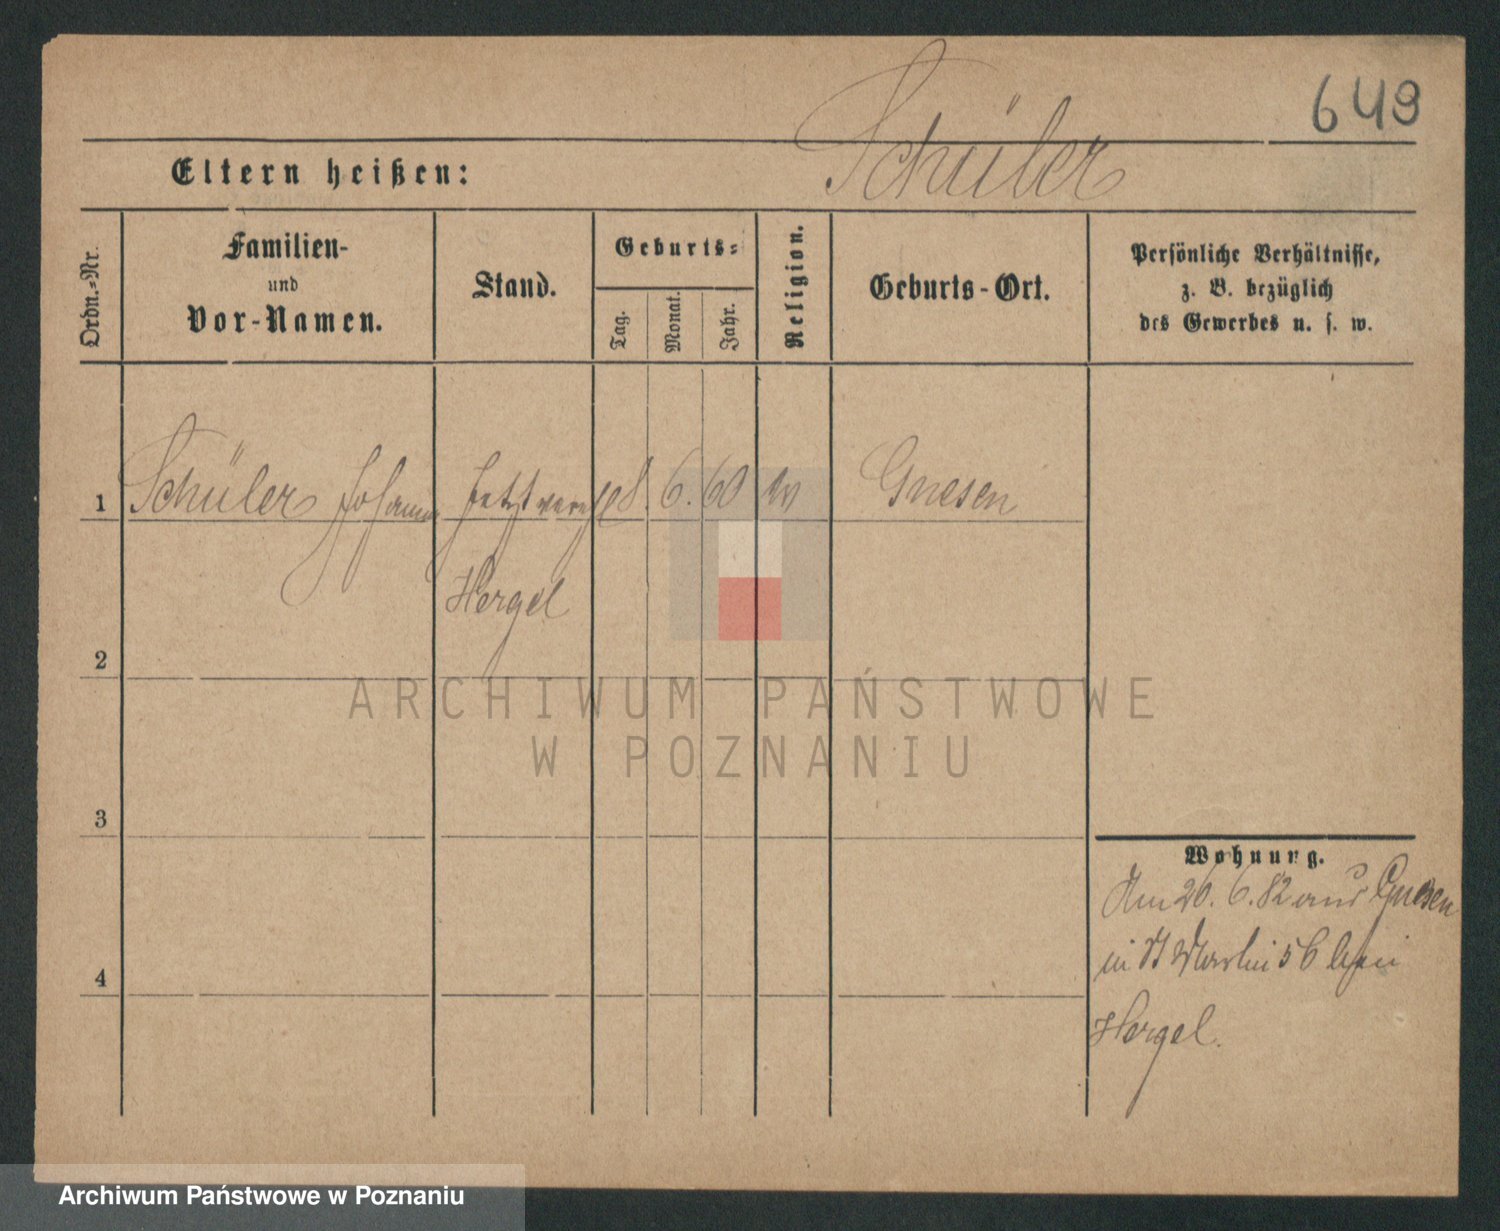 649
Schüler
Eltern heißen:
Ordn.=Nr.
Familien-
und
Vor-Namen.
Stand.
Geburts=
Tag.
Monat.
Jahr.
Religion.
Geburts-Ort.
Persönliche Verhältnisse,
z. B. bezüglich
des Gewerbes u. s. w.
1 Schüler Johanna jetzt vereh 18. 6. 60 Gnesen
Hergel
2
ARCHIWUM PAŃSTWOWE
W POZNANIU
3
Wohnung.
Am 26. 6. 82 aus Gnesen
in St Martin 56 bei
4
Hergel.
Archiwum Państwowe w Poznaniu